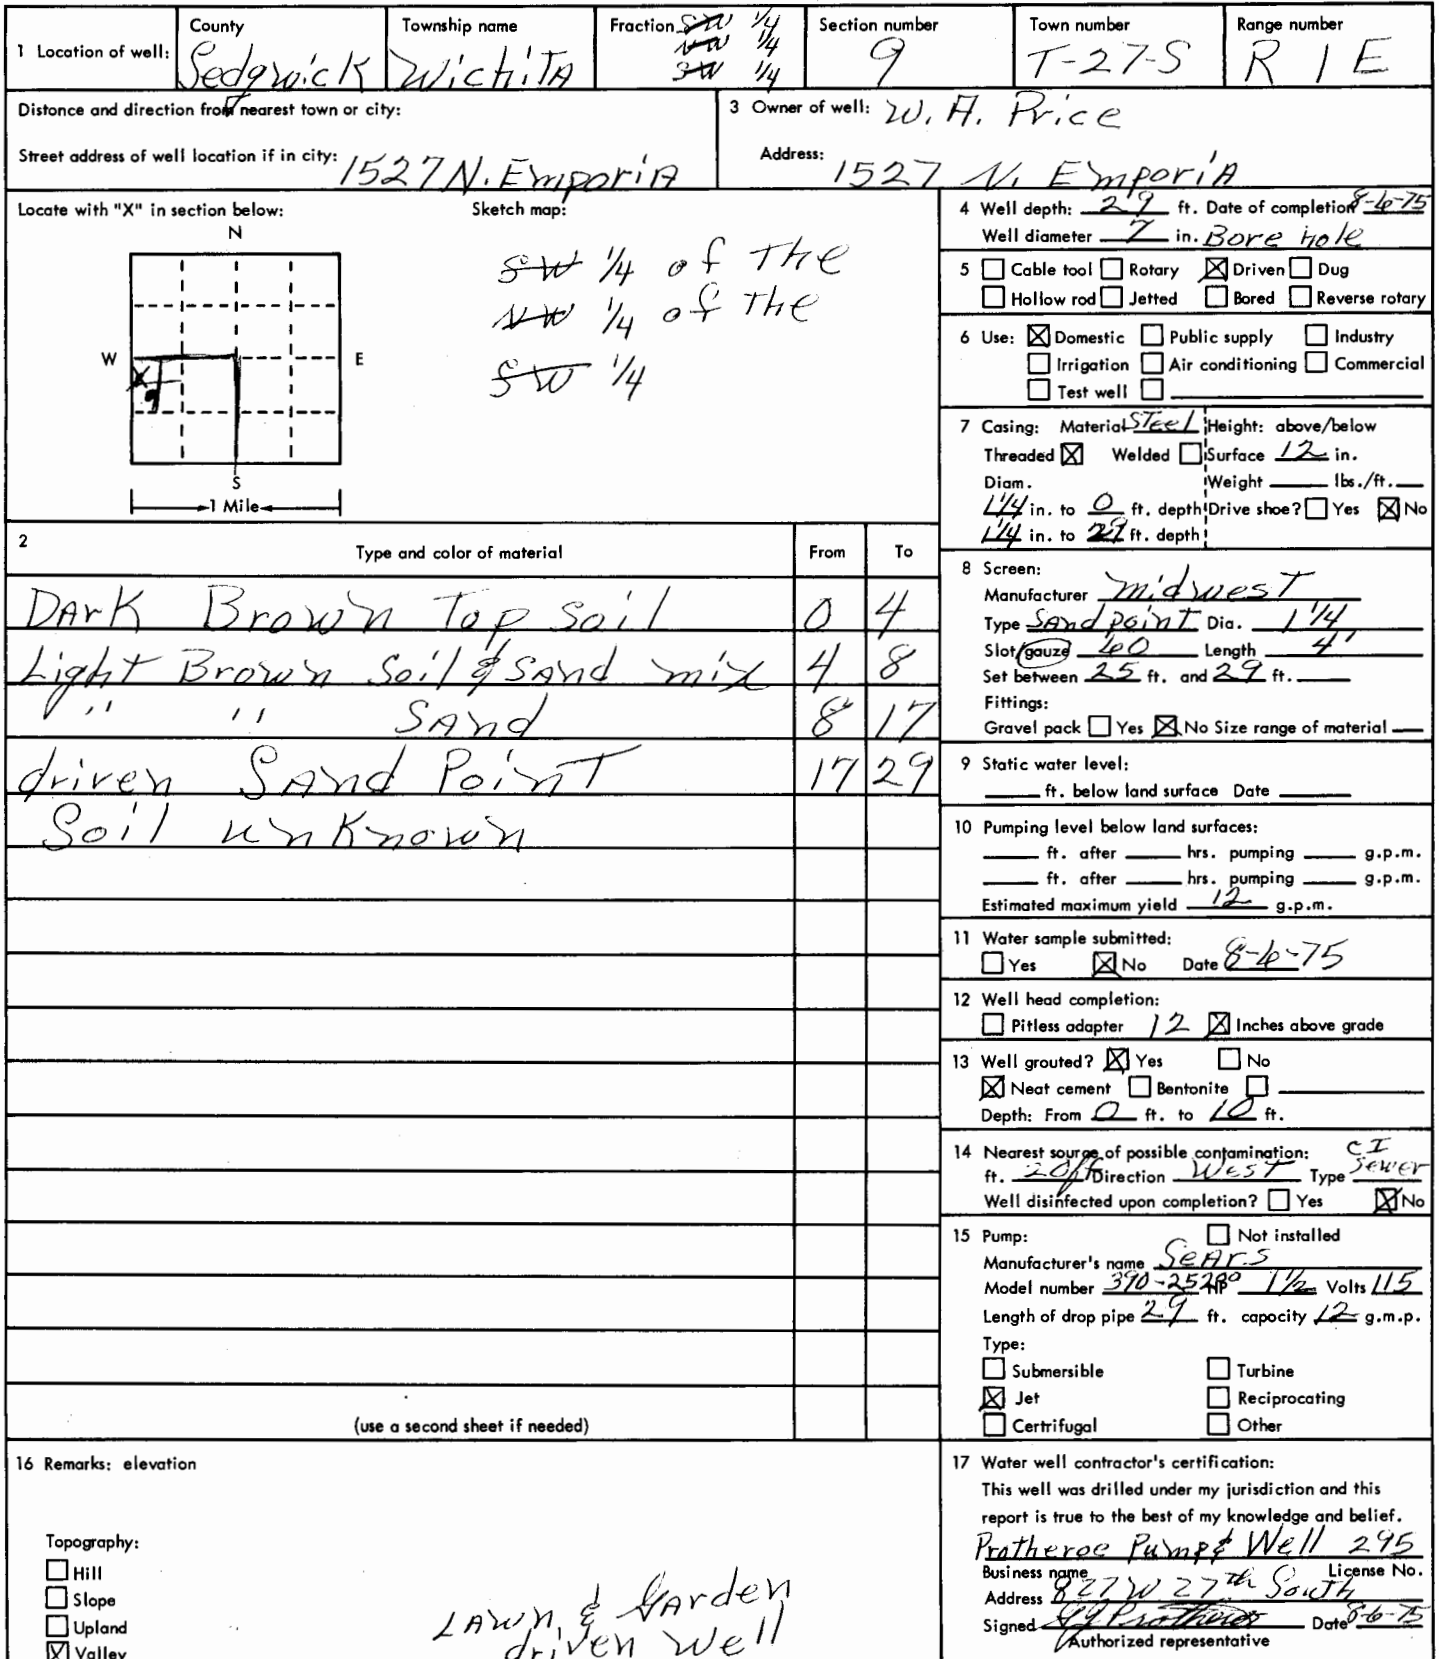 1 Location of well: County Sedgwick Township name Wichita Fraction SW 1/4 NW 1/4 SW 1/4 Section number 9 Town number T-27-S Range number R 1 E
Distonce and direction from nearest town or city:
Street address of well location if in city: 1527 N. Emporia
3 Owner of well: W. A. Price
Address: 1527 N. Emporia
Locate with "X" in section below:
Sketch map:
N
W E
S
1 Mile
X
SW 1/4 of The
NW 1/4 of The
SW 1/4
2 Type and color of material From To
Dark Brown Top Soil 0 4
Light Brown Soil & Sand mix 4 8
" " Sand 8 17
driven Sand Point 17 29
Soil unknown
(use a second sheet if needed)
4 Well depth: 29 ft. Date of completion 8-6-75
Well diameter 7 in. Bore hole
5 Cable tool Rotary X Driven Dug
Hollow rod Jetted Bored Reverse rotary
6 Use: X Domestic Public supply Industry
Irrigation Air conditioning Commercial
Test well
7 Casing: Material Steel Height: above/below
Threaded X Welded Surface 12 in.
Diam. Weight lbs./ft.
1 1/4 in. to 0 ft. depth Drive shoe? Yes X No
1 1/4 in. to 29 ft. depth
8 Screen:
Manufacturer midwest
Type Sand Point Dia. 1 1/4
Slot/gauze 60 Length 4'
Set between 25 ft. and 29 ft.
Fittings:
Gravel pack Yes X No Size range of material
9 Static water level:
ft. below land surface Date
10 Pumping level below land surfaces:
ft. after hrs. pumping g.p.m.
ft. after hrs. pumping g.p.m.
Estimated maximum yield 12 g.p.m.
11 Water sample submitted:
Yes X No Date 8-6-75
12 Well head completion:
Pitless adapter 12 X Inches above grade
13 Well grouted? X Yes No
X Neat cement Bentonite
Depth: From 0 ft. to 10 ft.
14 Nearest sourge of possible contamination:
ft. 20 ft Direction West Type CI Sewer
Well disinfected upon completion? Yes X No
15 Pump: Not installed
Manufacturer's name Sears
Model number 390-2520 HP 1 1/2 Volts 115
Length of drop pipe 29 ft. capacity 12 g.m.p.
Type:
Submersible Turbine
X Jet Reciprocating
Certrifugal Other
16 Remarks: elevation
Topography:
Hill
Slope
Upland
X Valley
Lawn & Garden
driven Well
17 Water well contractor's certification:
This well was drilled under my jurisdiction and this
report is true to the best of my knowledge and belief.
Protheroe Pump & Well 295
Business name License No.
Address 827 W 27th South
Signed Protheroe Date 8-6-75
Authorized representative